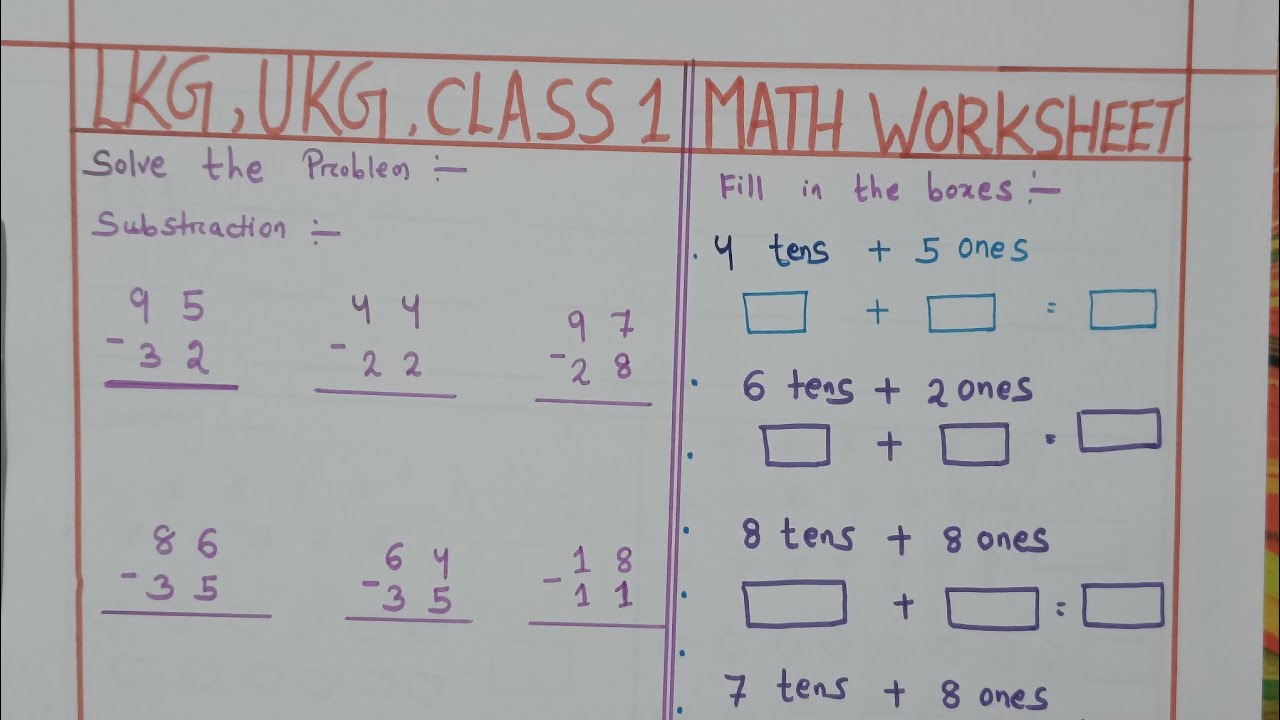 LKG, UKG, CLASS 1 MATH WORKSHEET
Solve the Problem :-
Substraction :-
95 44 97
-32 -22 -28
86 64 18
-35 -35 -11
Fill in the boxes :-
4 tens + 5 ones
+ =
6 tens + 2 ones
+ =
8 tens + 8 ones
+ =
7 tens + 8 ones